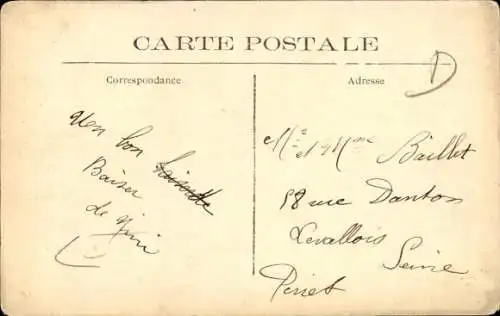 CARTE POSTALE
Correspondance
Adresse
D
Un bon
Baiser
de Nini
Mr et Mme Baillet
58 rue Danton
Levallois
Perret Seine